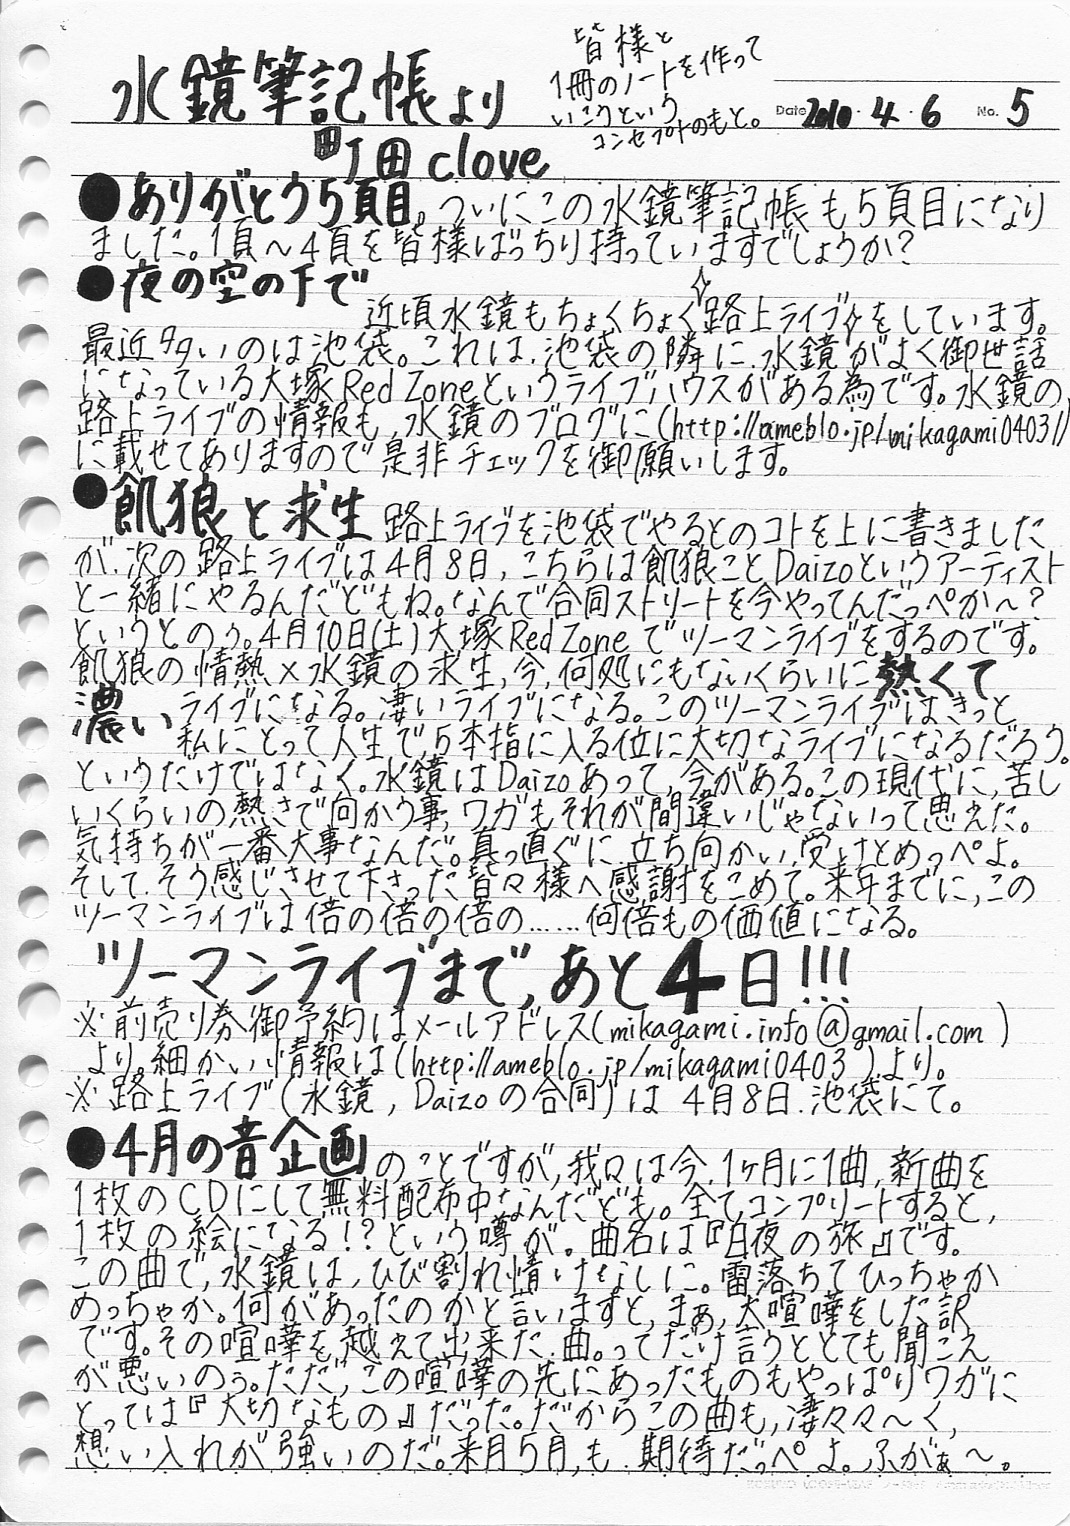 水鏡筆記帳より
皆様と
1冊のノートを作って
いこうという
コンセプトのもと。
Date 2010・4・6 No. 5
町田 clove
●ありがとう5頁目。ついにこの水鏡筆記帳も5頁目になり
ました。1頁〜4頁を皆様ばっちり持っていますでしょうか?
●夜の空の下で
近頃水鏡もちょくちょく路上ライブをしています。
最近多いのは池袋。これは、池袋の隣に、水鏡がよく御世話
になっている大塚Red Zoneというライブハウスがある為です。水鏡の
路上ライブの情報も、水鏡のブログに(http://ameblo.jp/mikagami0403/)
に載せてありますので是非チェックを御願いします。
●飢狼と求生 路上ライブを池袋でやるとのコトを上に書きました
が、次の路上ライブは4月8日、こちらは飢狼ことDaizoというアーティスト
と一緒にやるんだどもね。なんで合同ストリートを今やってんだっぺか〜?
というとのぅ。4月10日(土)大塚Red Zoneでツーマンライブをするのです。
飢狼の情熱×水鏡の求生、今、何処にもないくらいに熱くて
濃いライブになる。凄いライブになる。このツーマンライブはきっと
私にとって人生で、5本指に入る位に大切なライブになるだろう。
というだけではなく。水鏡はDaizoあって、今がある。この現代に、苦し
いくらいの熱さで向かう事、ワガもそれが間違いじゃないって思えた。
気持ちが一番大事なんだ。真っ直ぐに立ち向かい、受けとめっぺよ。
そして、そう感じさせて下さった皆々様へ感謝をこめて。来年までに、この
ツーマンライブは倍の倍の倍の……何倍もの価値になる。
ツーマンライブまで、あと4日!!!
※前売り券御予約はメールアドレス(mikagami.info@gmail.com)
より。細かい情報は(http://ameblo.jp/mikagami0403)より。
※路上ライブ(水鏡,Daizoの合同)は4月8日、池袋にて。
●4月の音企画のことですが、我々は今、1ヶ月に1曲、新曲を
1枚のCDにして無料配布中なんだども。全てコンプリートすると、
1枚の絵になる!?という噂が。曲名は『白夜の旅』です。
この曲で、水鏡は、ひび割れ情けなしに。雷落ちてひっちゃか
めっちゃか。何があったのかと言いますと、まぁ、大喧嘩をした訳
です。その喧嘩を越えて出来た、曲。ってだけ言うととても聞こえ
が悪いのぅ。ただ、この喧嘩の先にあったものもやっぱりワガに
とっては『大切なもの』だった。だからこの曲も、凄々々〜く、
想い入れが強いのだ。来月5月、も、期待だっぺよ。ふがぁ〜。